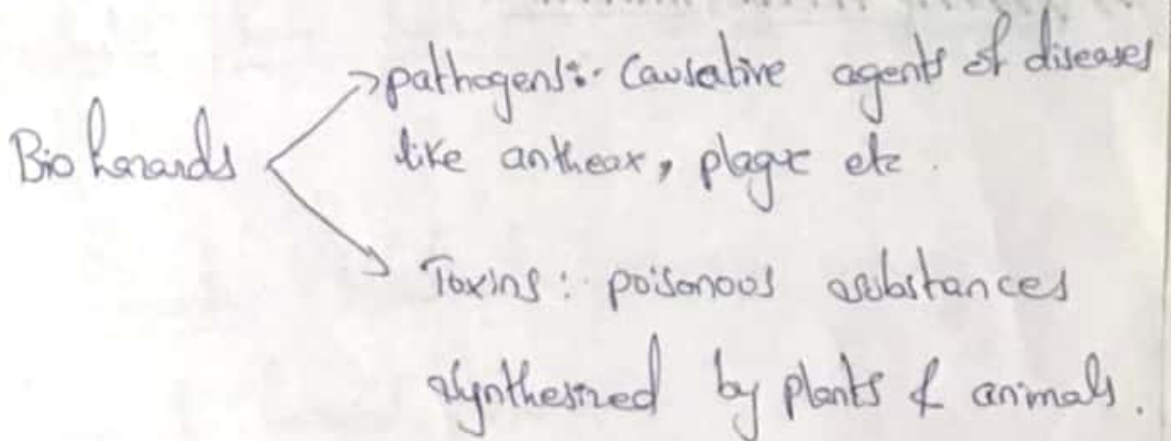 pathogens:- Causative agents of diseases
Bio hazards
like anthrax, plague etc.
Toxins: poisonous substances
synthesized by plants & animals.